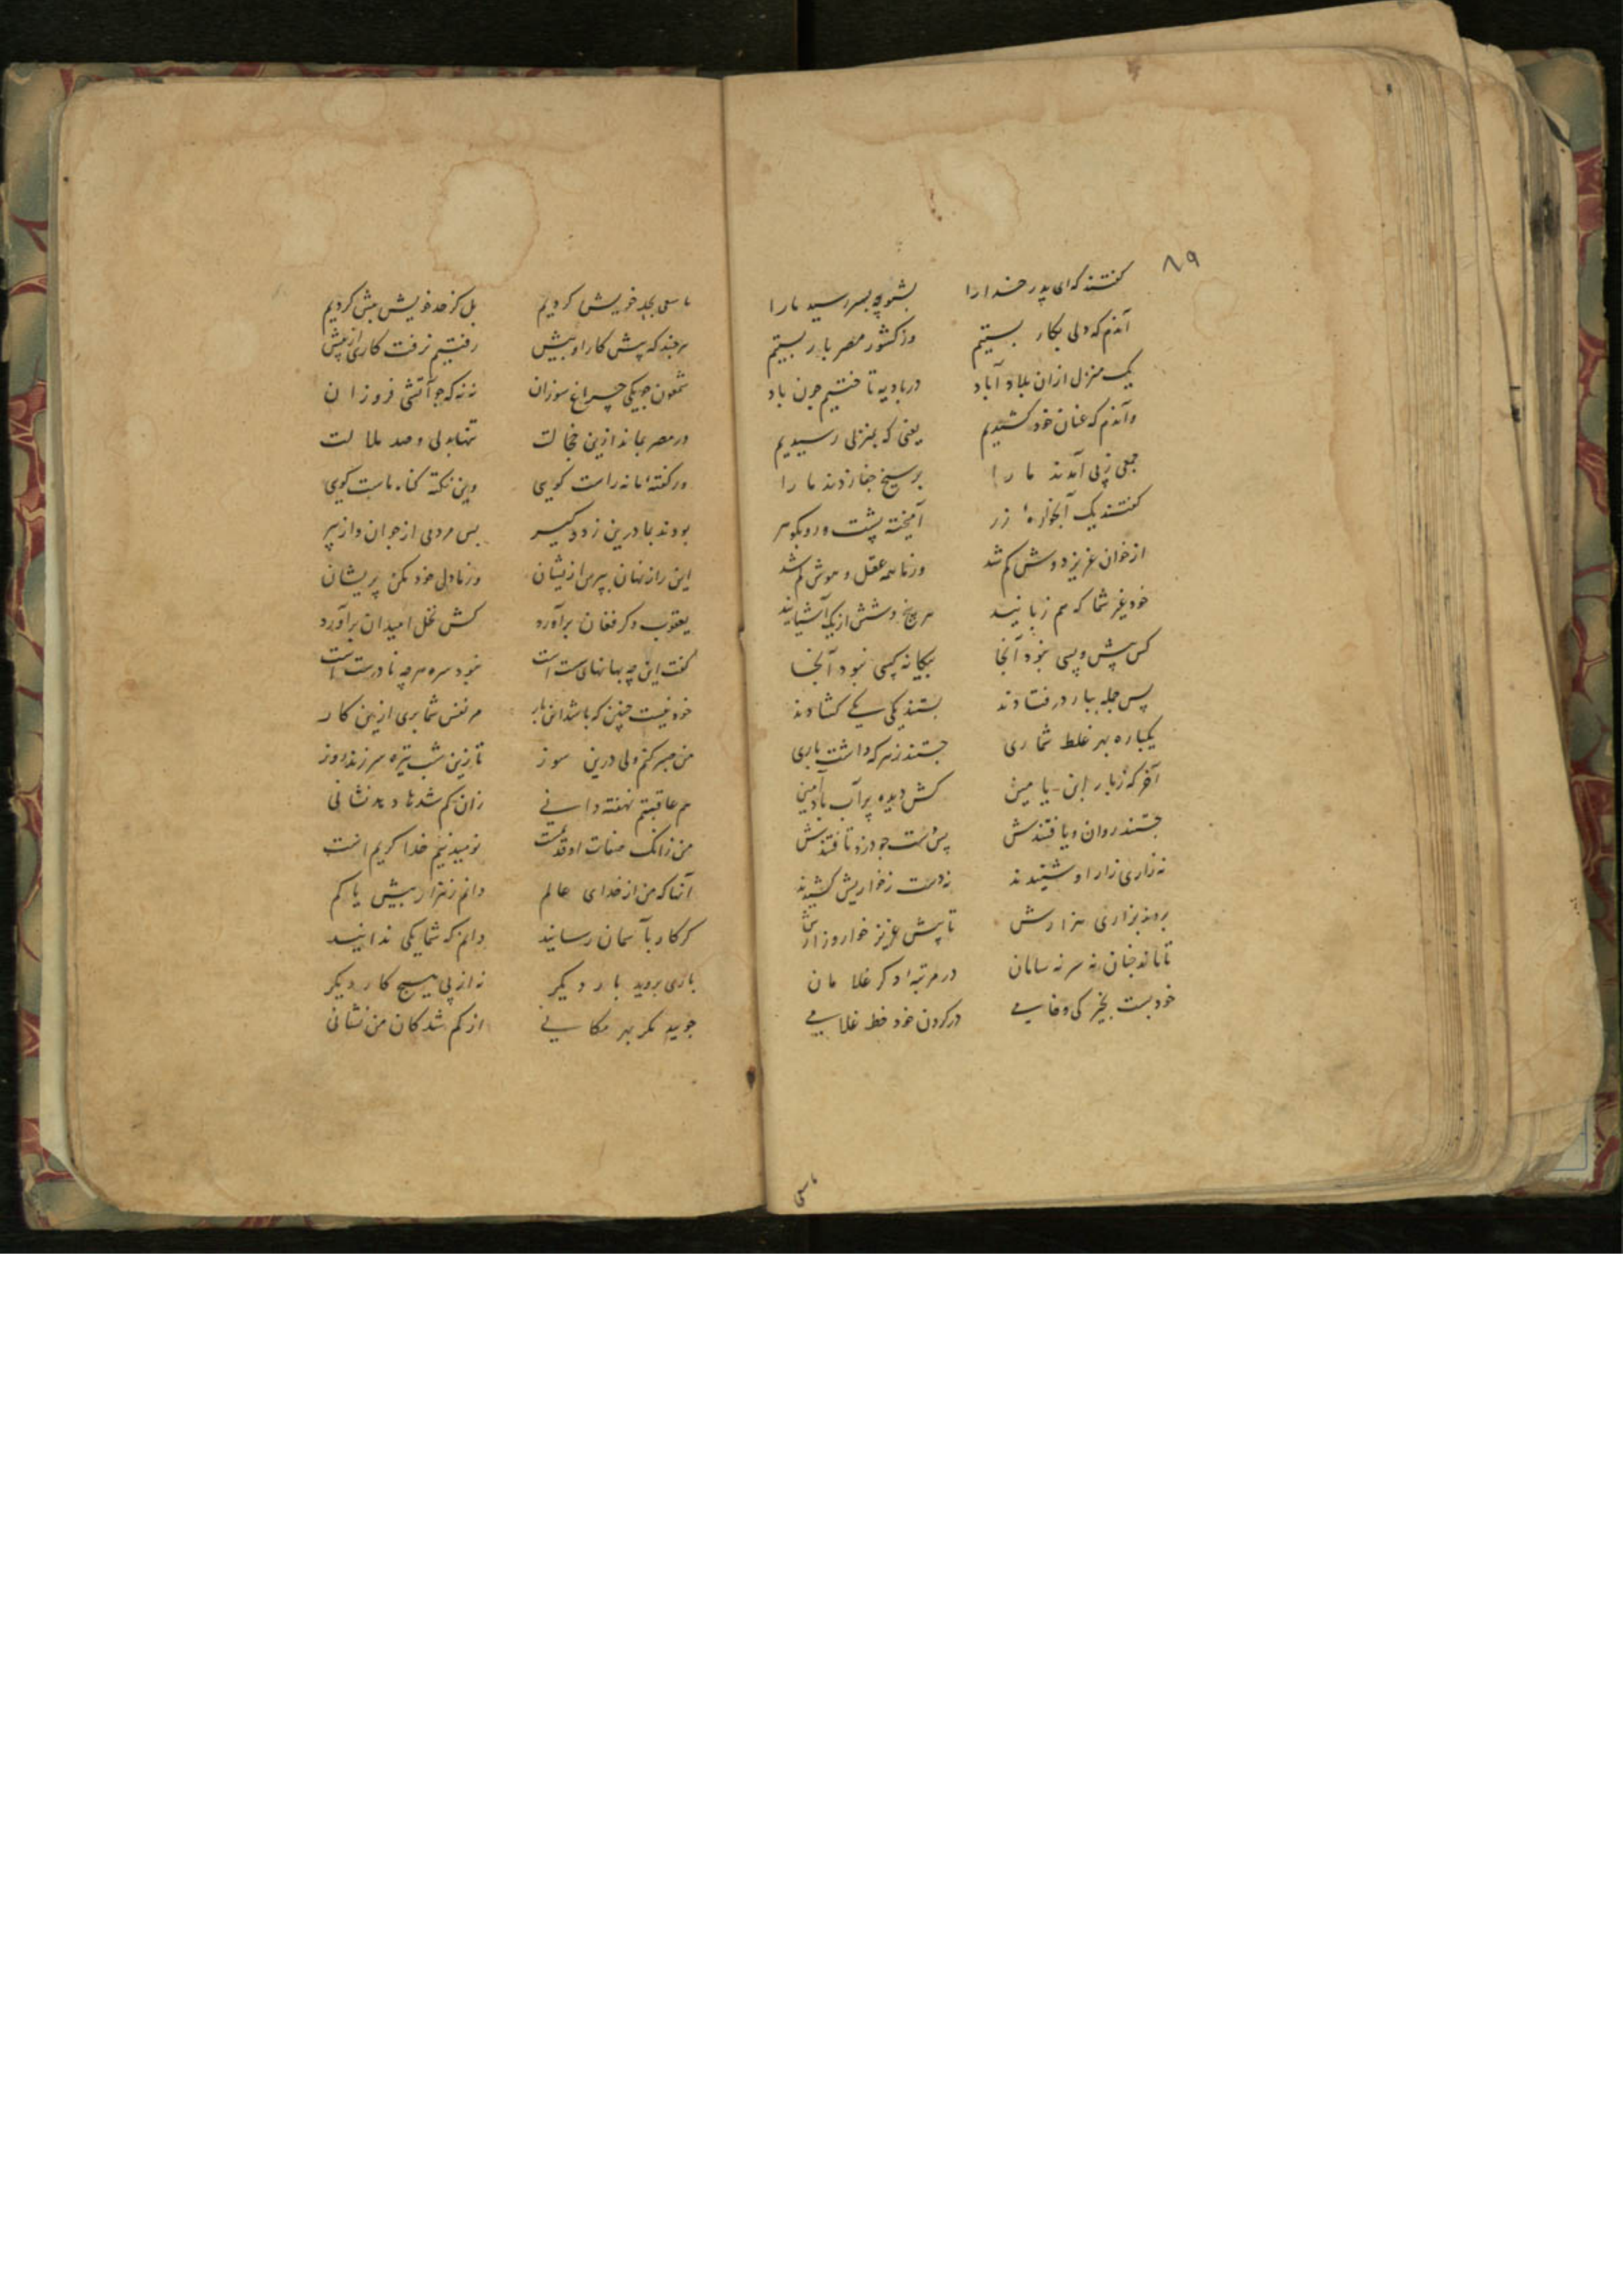 ۸۹
گفتند که ای پدر خدا را بشنو چه بسر رسید ما را
آندم که دلی بکار بستیم وز کشور مصر بار بستیم
یک منزل ازان بلاد آباد در بادیه تا ختیم چون باد
وآندم که عنان خود کشیدیم یعنی که بمنزلی رسیدیم
جمعی ز پی آمدند ما را بر سیخ جفا زدند ما را
گفتند یک آبخورهٔ زر آمیخته پشت و رو بگوهر
از خوان عزیز دوش گم شد وز ما همه عقل و هوش گم شد
خود غیر شما که هم زبانید هر پنج و شش از یک آشیانید
کس پیش و پسی نبود آنجا بیگانه کسی نبود آنجا
پس جمله ببار در فتادند بستند یکی یکی گشادند
یکباره بهر غلط شماری جستند ز هر که داشت باری
آخر که ز بار ابن یامین کش دیده پر آب باد آمین
جستند روان و یافتندش پس دست چو دزد تافتندش
نه زاری زار او شنیدند نه دست ز خواریش کشیدند
بردند بزاری هزارش تا پیش عزیز خوار و زارش
تا ماند چنان نه سر نه سامان در مرتبهٔ دگر غلامان
خود بست بخیر کی وفایی در گردن خود خط غلامی
ما سعی
ما سعی بجد خویش کردیم بل کز حد خویش بیش کردیم
هر چند که پیش کار او بیش رفتیم نرفت کاری از پیش
شمعون چو یکی چراغ سوزان نه نه که چو آتشی فروزان
در مصر بماند ازین خجالت تنها بدلی و صد ملالت
ور گفتهٔ ما نه راست گویی وین نکته گناه ماست گویی
بودند بما درین زد و گیر بس مردمی از جوان و از پیر
این راز نهان بپرس ازیشان وز ما دل خود مکن پریشان
یعقوب دگر فغان برآورد کش نخل امید ازان برآورد
گفت این چه بهانهای سست است نبود سره هر چه نادرست است
خود نیست چنین که باشد این بار هر نفس شما بری ازین کار
من صبر کنم ولی درین سوز تا زین شب تیره سر زند روز
هم عاقبتم نهفته دانی زان گم شدها دهد نشانی
من زانک صفات او قدیمست نومید نیم خدا کریم است
آنها که من از خدای عالم دانم ز هزار بیش یا کم
گر کار بآسمان رسانید دانم که شما یکی ندانید
باری بروید بار دیگر نه از پی هیچ کار دیگر
جویید مگر بهر مکانی از گم شدگان من نشانی